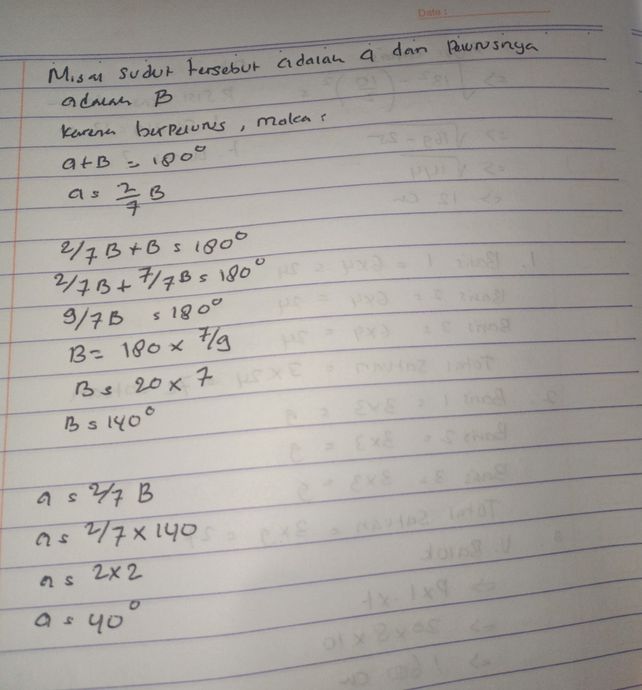 Date :
Misal sudut tersebut adalah a dan Pelurusnya
adalah B
Karena berpelurus, maka :
a+B = 180°
a = 2/7 B
2/7 B + B = 180°
2/7 B + 7/7 B = 180°
9/7 B = 180°
B = 180 x 7/9
B = 20 x 7
B = 140°
a = 2/7 B
a = 2/7 x 140
a = 2x2
a = 40°